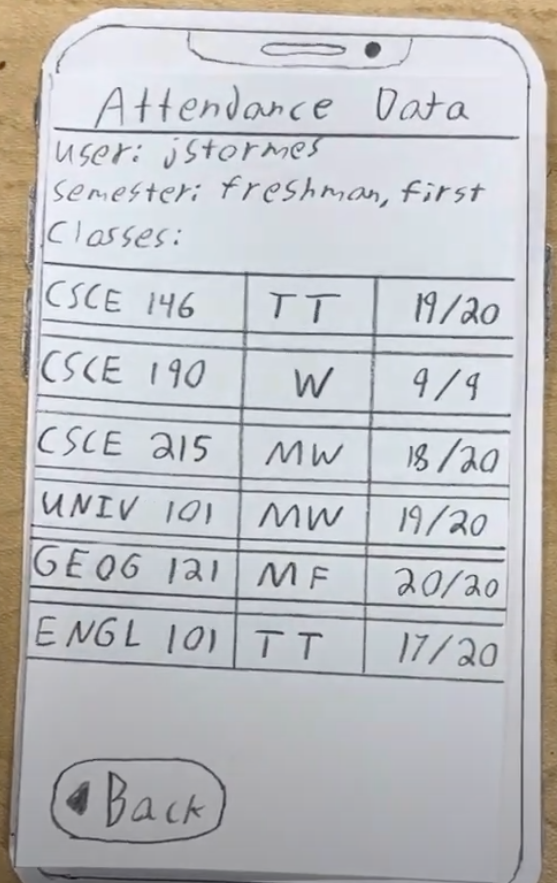 Attendance Data
user: jstormes
semester: freshman, first
Classes:
CSCE 146 TT 19/20
CSCE 190 W 9/9
CSCE 215 MW 18/20
UNIV 101 MW 19/20
GEOG 121 MF 20/20
ENGL 101 TT 17/20
Back